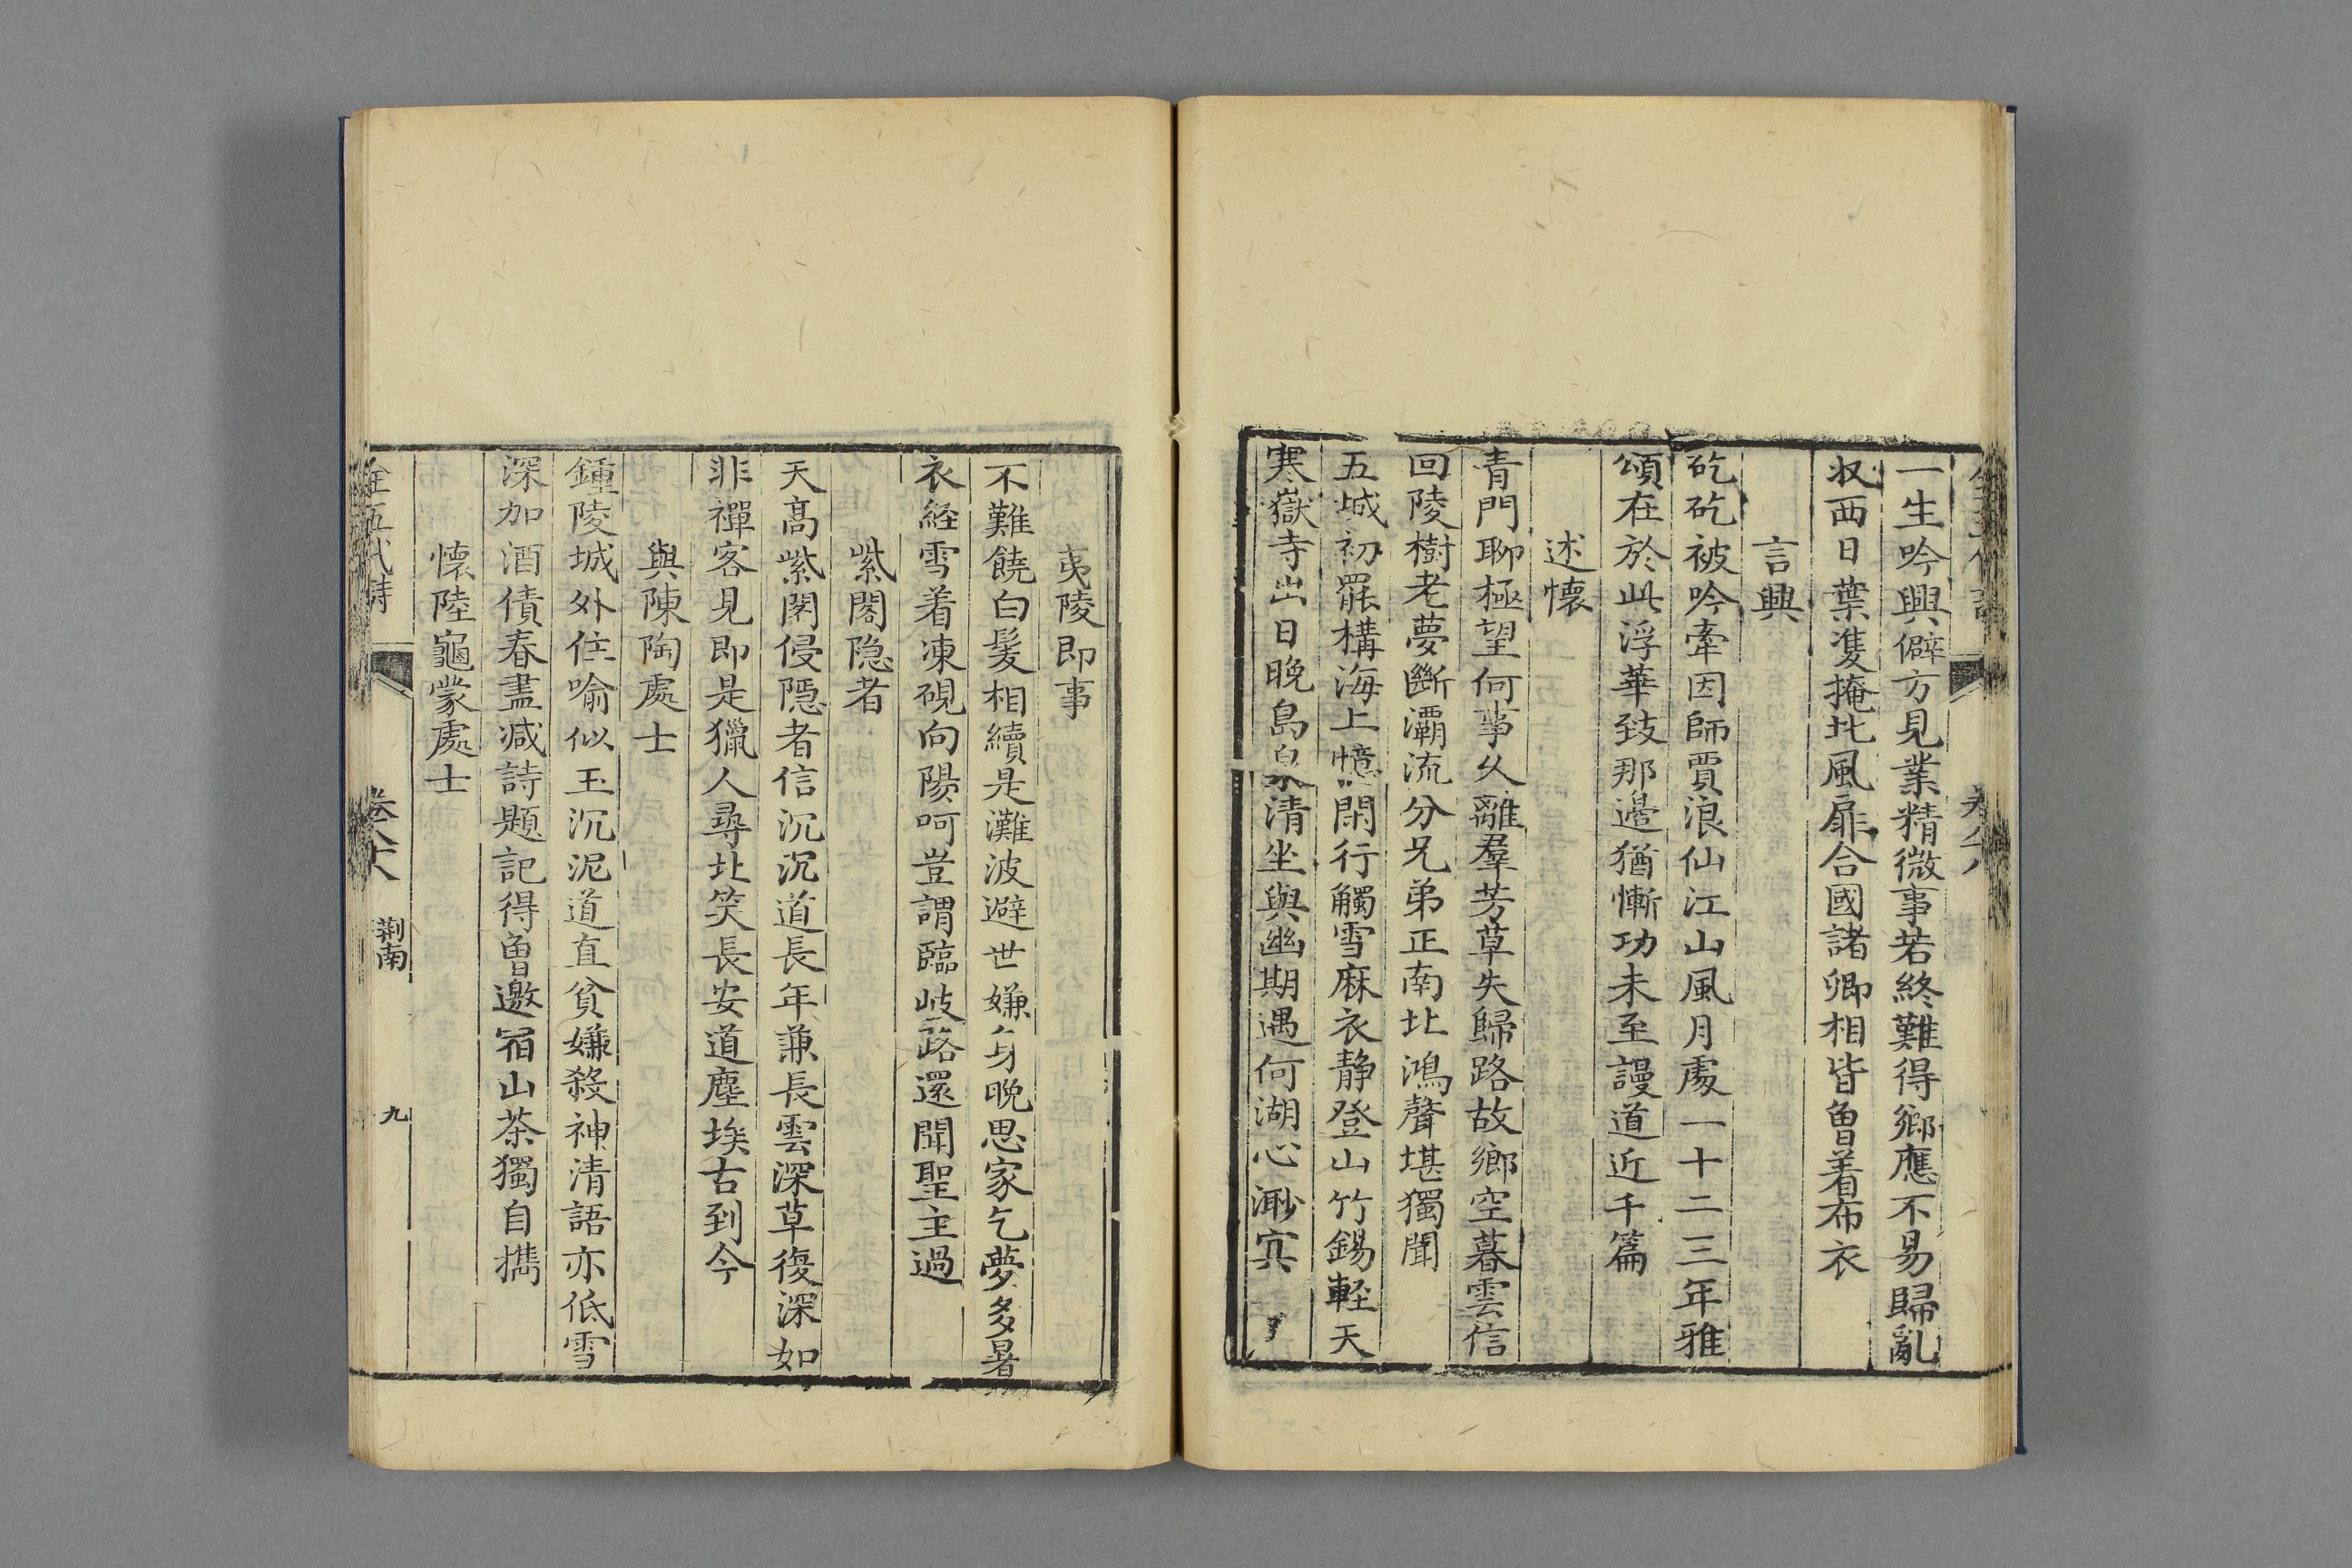 一生吟興僻方見業精微事若終難得鄉應不易歸亂
収西日葉隻掩北風扉合國諸卿相皆曽着布衣
言興
矻矻被吟牽因師賈浪仙江山風月處一十二三年雅
頌在於此浮華致那邉猶慚功未至謾道近千篇
述懷
青門聊極望何事乆離羣芳草失歸路故鄉空暮雲信
回陵樹老夢斷灞流分兄弟正南北鴻聲堪獨聞
五城初罷構海上憶閑行觸雪麻衣静登山竹錫軽天
寒嶽寺出日晚島泉清坐與幽期遇何湖心渺㝠
夷陵即事
不難饒白髪相續是灘波避世嫌身晩思家乞夢多暑
衣経雪着凍硯向陽呵豈謂臨岐路還聞聖主過
紫閣隐者
天髙紫閣侵隱者信沉沉道長年兼長雲深草復深如
非禪客見即是獵人尋北笑長安道塵埃古到今
與陳陶處士
鍾陵城外住喻似玉沉泥道直貧嫌殺神清語亦低雪
深加酒債春盡减詩題記得曽邀宿山茶獨自擕
懷陸龜蒙處士
全五代詩 卷六八 荆南 九